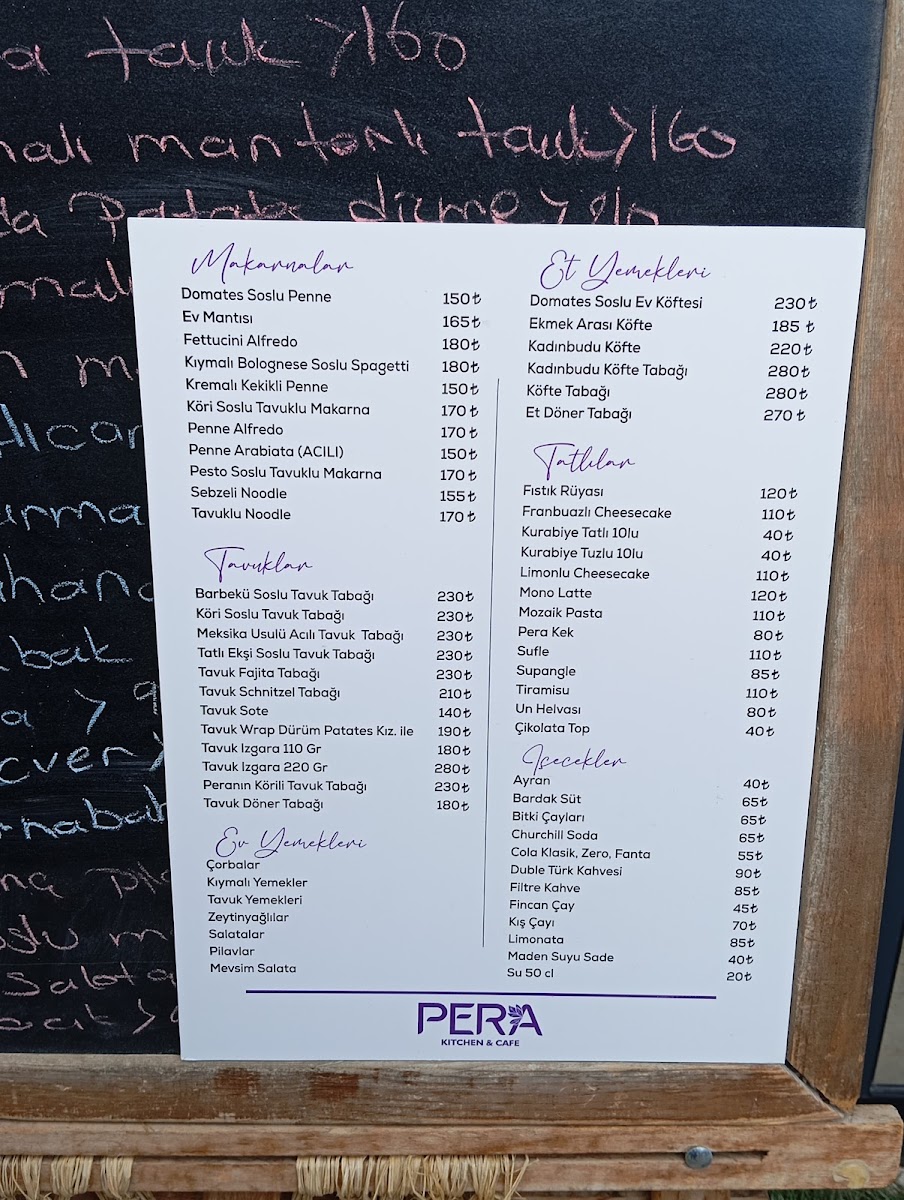 tavuk > 160
mantarlı tavuk > 160
Makarnalar
Domates Soslu Penne 150₺
Ev Mantısı 165₺
Fettucini Alfredo 180₺
Kıymalı Bolognese Soslu Spagetti 180₺
Kremalı Kekikli Penne 150₺
Köri Soslu Tavuklu Makarna 170₺
Penne Alfredo 170₺
Penne Arabiata (ACILI) 150₺
Pesto Soslu Tavuklu Makarna 170₺
Sebzeli Noodle 155₺
Tavuklu Noodle 170₺
Tavuklar
Barbekü Soslu Tavuk Tabağı 230₺
Köri Soslu Tavuk Tabağı 230₺
Meksika Usulü Acılı Tavuk Tabağı 230₺
Tatlı Ekşi Soslu Tavuk Tabağı 230₺
Tavuk Fajita Tabağı 230₺
Tavuk Schnitzel Tabağı 210₺
Tavuk Sote 140₺
Tavuk Wrap Dürüm Patates Kız. ile 190₺
Tavuk Izgara 110 Gr 180₺
Tavuk Izgara 220 Gr 280₺
Peranın Körili Tavuk Tabağı 230₺
Tavuk Döner Tabağı 180₺
Ev Yemekleri
Çorbalar
Kıymalı Yemekler
Tavuk Yemekleri
Zeytinyağlılar
Salatalar
Pilavlar
Mevsim Salata
Et Yemekleri
Domates Soslu Ev Köftesi 230₺
Ekmek Arası Köfte 185 ₺
Kadınbudu Köfte 220₺
Kadınbudu Köfte Tabağı 280₺
Köfte Tabağı 280₺
Et Döner Tabağı 270 ₺
Tatlılar
Fıstık Rüyası 120₺
Franbuazlı Cheesecake 110₺
Kurabiye Tatlı 10lu 40₺
Kurabiye Tuzlu 10lu 40₺
Limonlu Cheesecake 110₺
Mono Latte 120₺
Mozaik Pasta 110₺
Pera Kek 80₺
Sufle 110₺
Supangle 85₺
Tiramisu 110₺
Un Helvası 80₺
Çikolata Top 40₺
İçecekler
Ayran 40₺
Bardak Süt 65₺
Bitki Çayları 65₺
Churchill Soda 65₺
Cola Klasik, Zero, Fanta 55₺
Duble Türk Kahvesi 90₺
Filtre Kahve 85₺
Fincan Çay 45₺
Kış Çayı 70₺
Limonata 85₺
Maden Suyu Sade 40₺
Su 50 cl 20₺
PERA
KITCHEN & CAFE